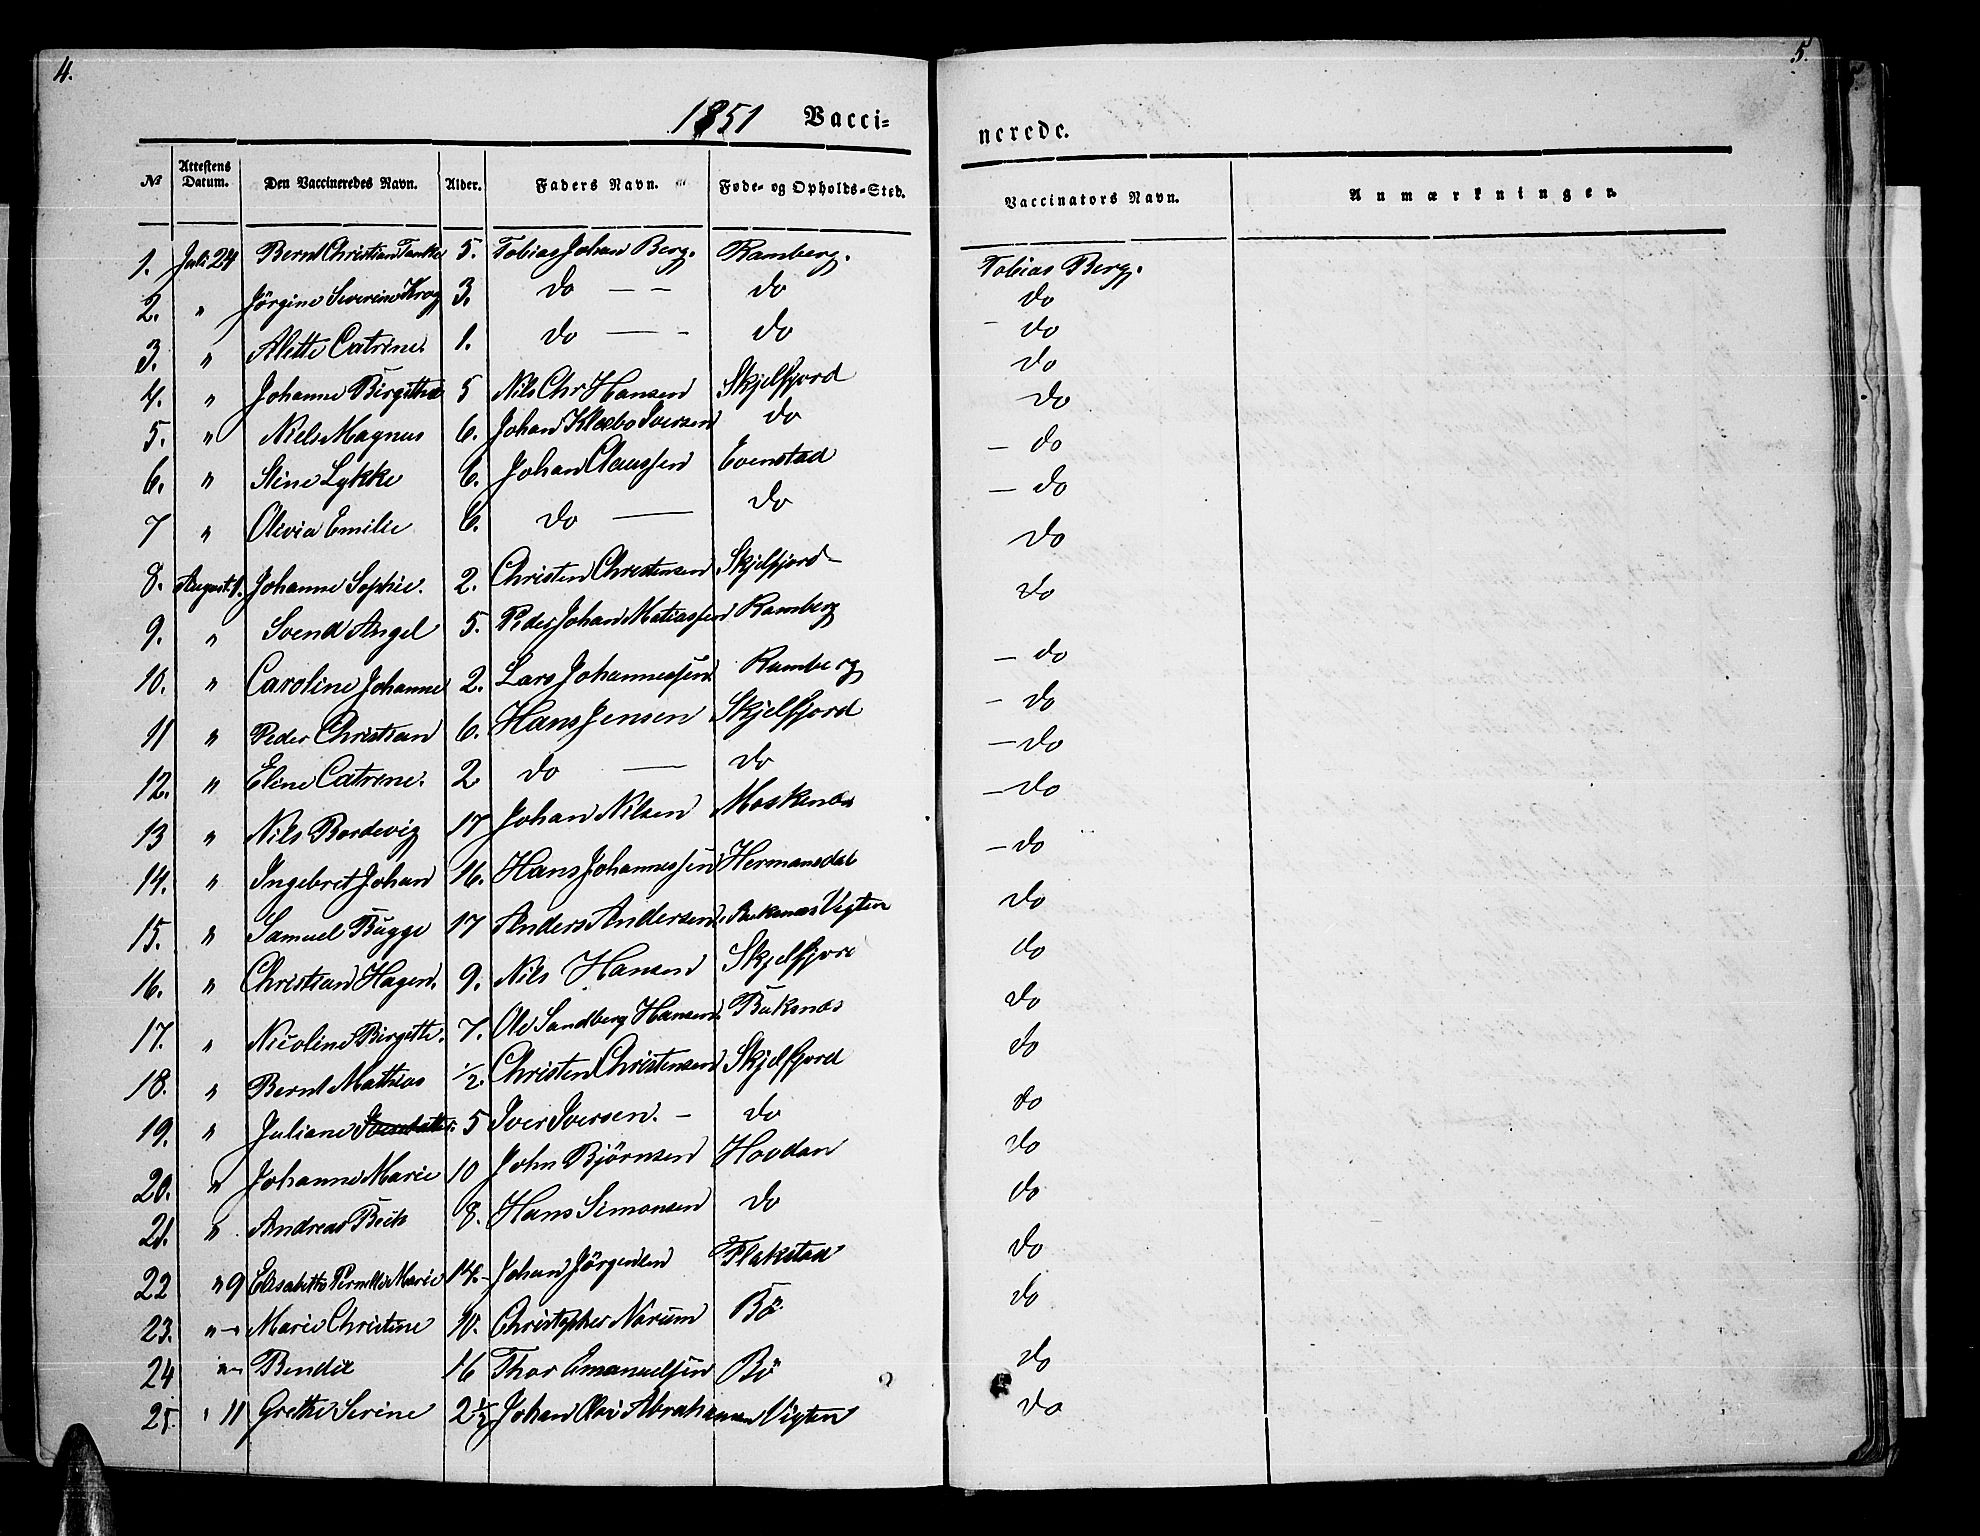 4.
5.
1851 Vacci-
nerede.
№ Attestens Datum. Den Vaccineredes Navn. Alder. Faders Navn. Føde- og Opholds-Sted. Vaccinators Navn. Anmærkninger.
1. Juli 24 Bernt Christian Tanke 5. Tobias Johan Berg. Ramberg. Tobias Berg.
2. " Jörgine Severine Krog 3. do — — do do
3. " Alette Catrine. 1. do — - do – do
4. " Johanne Birgitha 5 Nils Chr Hansen Skjelfjord do
5. " Niels Magnus 6. Johan Klæbo Iversen do do
6. " Stine Lykke 6. Johan Claussen Evenstad – do
7 " Olivia Emilie 6. do — do – do
8. August 1. Johanne Sophie. 2. Christen Christensen Skjelfjord do
9. " Svend Angel 5. Peder Johan Matiassen Ramberg do
10. " Caroline Johanne 2. Lars Johannessen Ramberg – do
11 " Peder Christian 6. Hans Jensen Skjelfjord – do
12. " Eline Catrine. 2 do — do – do
13 " Nils Bordevig 17 Johan Nilsen Moskenæs – do
14. " Ingebret Johan 16. Hans Johannessen Hermansdal – do
15. " Samuel Bugge 17 Anders Andersen. Buksnæs Vigten do
16. " Christian Hagen. 9. Nils Hansen Skjelfjord do
17. " Nicoline Birgitte. 7. Ole Sandberg Hansen. Buksnæs do
18. " Bernt Mathias 1/2. Christen Christensen Skjelfjord do
19. " Juliane 5 Iver Iversen. - do do
20. " Johanne Marie 10 John Björnsen Hovdan do
21. " Andreas Bech 8. Hans Simonsen do do
22 " 9 Elisabeth Pernille Marie 14. Johan Jörgensen Flakstad do
23. " Marie Christine 10. Christopher Norum Bö do
24 " Bendix 16 Thor Emanuelsen Bö do
25. " 11 Grethe Serine 2 1/2 Johan Olai Abrahamsen Vigten do